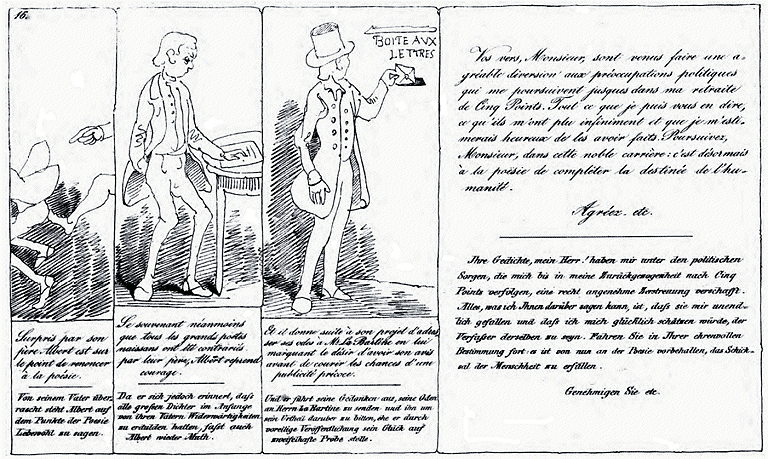 16.
BOITE AUX
LETTRES
Surpris par son
père Albert est sur
le point de renoncer
à la poésie.
Von seinem Vater über,
rascht steht Albert auf
dem Punkte der Poesie
Lebewohl zu sagen.
Se souvenant néanmoins
que tous les grands poètes
naissans ont été contrariés
par leur père, Albert reprend
courage.
Da er sich jedoch erinnert, daſs
alle groſsen Dichter im Anfange
von Ihren Vätern Widerwärtigkeiten
zu erdulden hatten, faſst auch
Albert wieder Muth.
Et il donne suite à son projet d'adres,
ser ses odes à Mr. La Bartine en lui
marquant le désir d'avoir son avis
avant de courir les chances d'une
publicité précoce.
Und er führt seine Gedanken aus, seine Oden
an Herrn La Martine zu senden und ihn um
sein Urtheil darüber zu bitten, ehe er durch
voreilige Veröffentlichung sein Glück auf
zweifelhafte Probe stelle.
Vos vers, Monsieur, sont venus faire une a-
gréable diversion aux préoccupations politiques
qui me poursuivent jusques dans ma retraite
de Cinq Points. Tout ce que je puis vous en dire,
ce qu'ils m'ont plu infiniment et que je m'esti-
merais heureux de les avoir faits. Poursuivez,
Monsieur, dans cette noble carrière: c'est désormais
à la poësie de compléter la destinée de l'hu-
manité.
Agréez. etc.
Ihre Gedichte, mein Herr! haben mir unter den politischen
Sorgen, die mich bis in meine Zurückgezogenheit nach Cinq
Points verfolgen, eine recht angenehme Zerstreuung verschafft.
Alles, was ich Ihnen darüber sagen kann, ist, daſs sie mir unend-
lich gefallen und daſs ich mich glücklich schätzen würde, der
Verfaſser derselben zu seyn. Fahren Sie in Ihrer ehrenvollen
Bestimmung fort: es ist von nun an der Poesie vorbehalten, das Schick-
sal der Menschheit zu erfüllen.
Genehmigen Sie etc.